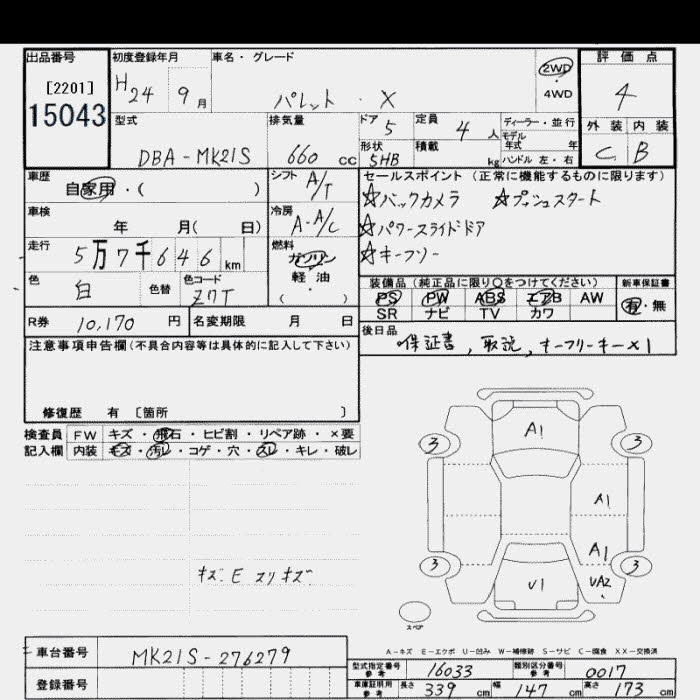 出品番号 初度登録年月 車名・グレード 評価点
[2201] H24 9月 パレット・X 2WD 4WD 4
15043
型式 排気量 ドア 5 定員 4人 ディーラー・並行 外装 内装
モデル年式 年
DBA-MK21S 660cc 形状 5HB 積載 kg ハンドル 左・右 C B
車歴 自家用・( ) シフト A/T セールスポイント (正常に機能するものに限ります)
☆バックカメラ ☆プッシュスタート
車検 年 月( 日) 冷房 A-A/C ☆パワースライドドア
走行 5万7千646km 燃料 ガソリン 軽油 ( ) ☆キーフリー
色 白 色替 色コード Z7T
装備品 (純正品に限り○をつけてください) 新車保証書
PS PW ABS エアB AW 有・無
SR ナビ TV カワ
R券 10,170円 名変期限 月 日 後日品
保証書, 取説, キーフリーキー×1
注意事項申告欄(不具合内容等は具体的に記入して下さい)
修復歴 有 〔箇所 〕
検査員 FW キズ・飛石・ヒビ割・リペア跡・×要
記入欄 内装 キズ・汚れ・コゲ・穴・スレ・キレ・破レ
A1
3 3
A1
A1
3 3
U1 UA2
キズ E スリキズ
スペア
A-キズ E-エクボ U-凹み W-補修跡 S-サビ C-腐食 XX-交換済
車台番号 MK21S-276279
登録番号
型式指定番号 参考 16033 類別区分番号 参考 0017
車庫証明用 参考 長さ 339cm 幅 147cm 高さ 173cm